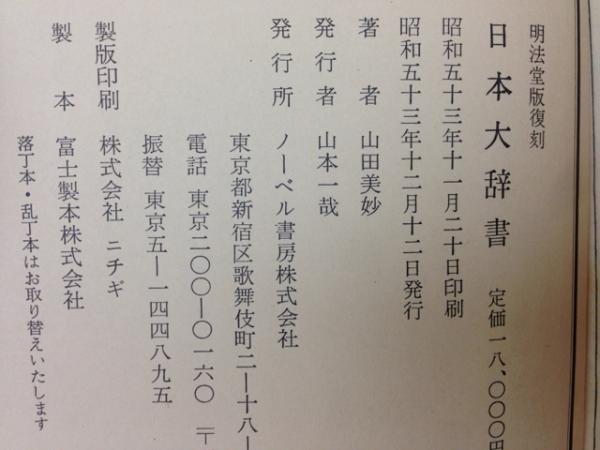 明法堂版復刻
日本大辞書 定価一八、〇〇〇円
昭和五十三年十一月二十日印刷
昭和五十三年十二月十二日発行
著者 山田美妙
発行者 山本一哉
発行所 ノーベル書房株式会社
東京都新宿区歌舞伎町二ー十八ー
電話 東京二〇〇ー〇一六〇 〒
振替 東京五ー一四四八九五
製版印刷 株式会社 ニチギ
製本 富士製本株式会社
落丁本・乱丁本はお取り替えいたします